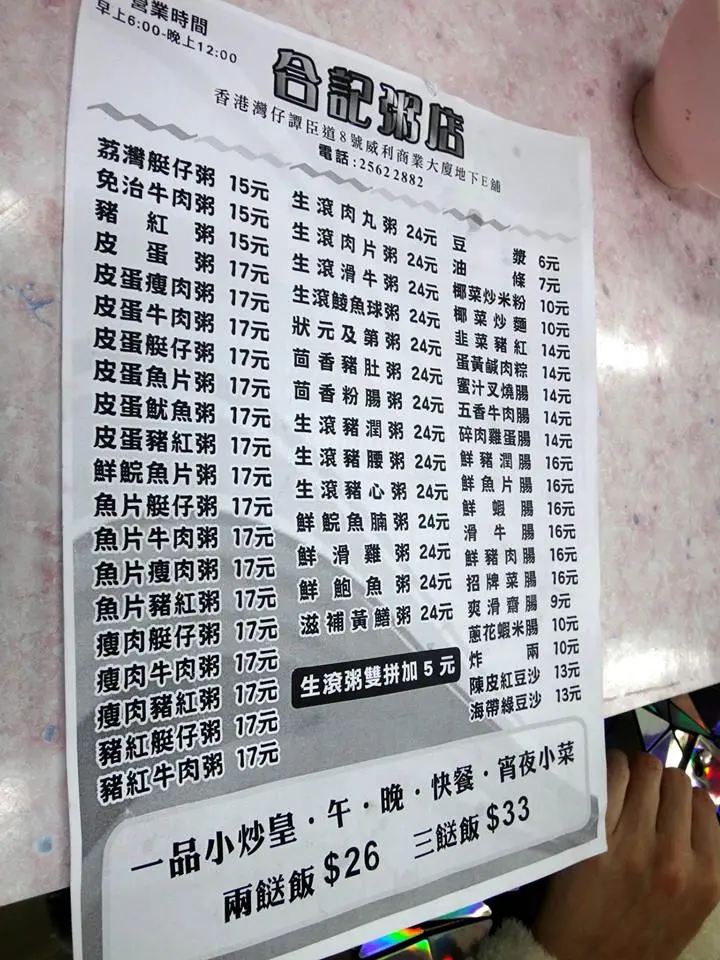 營業時間
早上6:00-晚上12:00
合記粥店
香港灣仔譚臣道8號威利商業大廈地下E舖
電話:25622882
荔灣艇仔粥 15元
免治牛肉粥 15元
豬紅粥 15元
皮蛋粥 17元
皮蛋瘦肉粥 17元
皮蛋牛肉粥 17元
皮蛋艇仔粥 17元
皮蛋魚片粥 17元
皮蛋魷魚粥 17元
皮蛋豬紅粥 17元
鮮鯇魚片粥 17元
魚片艇仔粥 17元
魚片牛肉粥 17元
魚片瘦肉粥 17元
魚片豬紅粥 17元
瘦肉艇仔粥 17元
瘦肉牛肉粥 17元
瘦肉豬紅粥 17元
豬紅艇仔粥 17元
豬紅牛肉粥 17元
生滾肉丸粥 24元
生滾肉片粥 24元
生滾滑牛粥 24元
生滾鯪魚球粥 24元
狀元及第粥 24元
茴香豬肚粥 24元
茴香粉腸粥 24元
生滾豬潤粥 24元
生滾豬腰粥 24元
生滾豬心粥 24元
鮮鯇魚腩粥 24元
鮮滑雞粥 24元
鮮鮑魚粥 24元
滋補黃鱔粥 24元
生滾粥雙拼加5元
豆漿 6元
油條 7元
椰菜炒米粉 10元
椰菜炒麵 10元
韭菜豬紅 14元
蛋黃鹹肉粽 14元
蜜汁叉燒腸 14元
五香牛肉腸 14元
碎肉雞蛋腸 14元
鮮豬潤腸 16元
鮮魚片腸 16元
鮮蝦腸 16元
滑牛腸 16元
鮮豬肉腸 16元
招牌菜腸 16元
爽滑齋腸 9元
蔥花蝦米腸 10元
炸兩 10元
陳皮紅豆沙 13元
海帶綠豆沙 13元
一品小炒皇·午·晚·快餐·宵夜小菜
兩餸飯 $26 三餸飯 $33